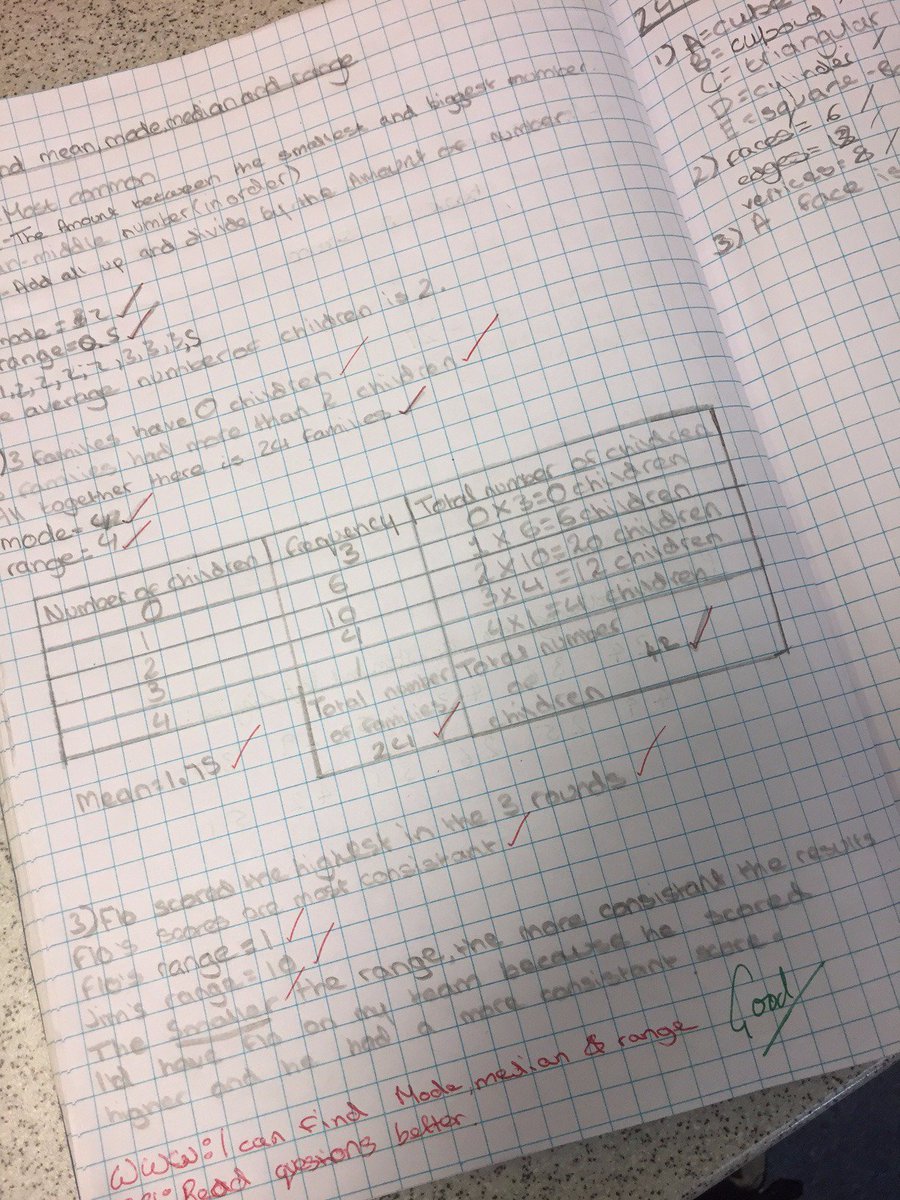 nd mean, mode, median and range
Most common
-The Amount between the smallest and biggest number
n-middle number (in order)
-Add all up and divide by the Amount of number
node = 2
range = 0.5
1,2,2,2,2,3,3,3,5
e average number of children is 2.
)3 families have 0 children
families had more than 2 children
All together there is 24 families
mode =
range = 4
Number of children frequency Total number of children
0 3 0 x 3 = 0 children
1 6 1 x 6 = 6 children
2 10 2 x 10 = 20 children
3 4 3 x 4 = 12 children
4 1 4 x 1 = 4 children
Total number of families 24 Total number of children 42
Mean = 1.75
3) Flo scored the highest in the 3 rounds
Flo's scores are most consistant
Flo's range = 1
Jim's range = 10
The smaller the range, the more consistant the results
I'd have Flo on my team because he scored
higher and he had a more consistant score.
Good
WWW: I can find Mode, median & range
Read questions better.
24
1) A = cube
B = cuboid
C = triangular
D = cylinder
E = square -
2) faces = 6
edges =
vertices = 8
3) A face is